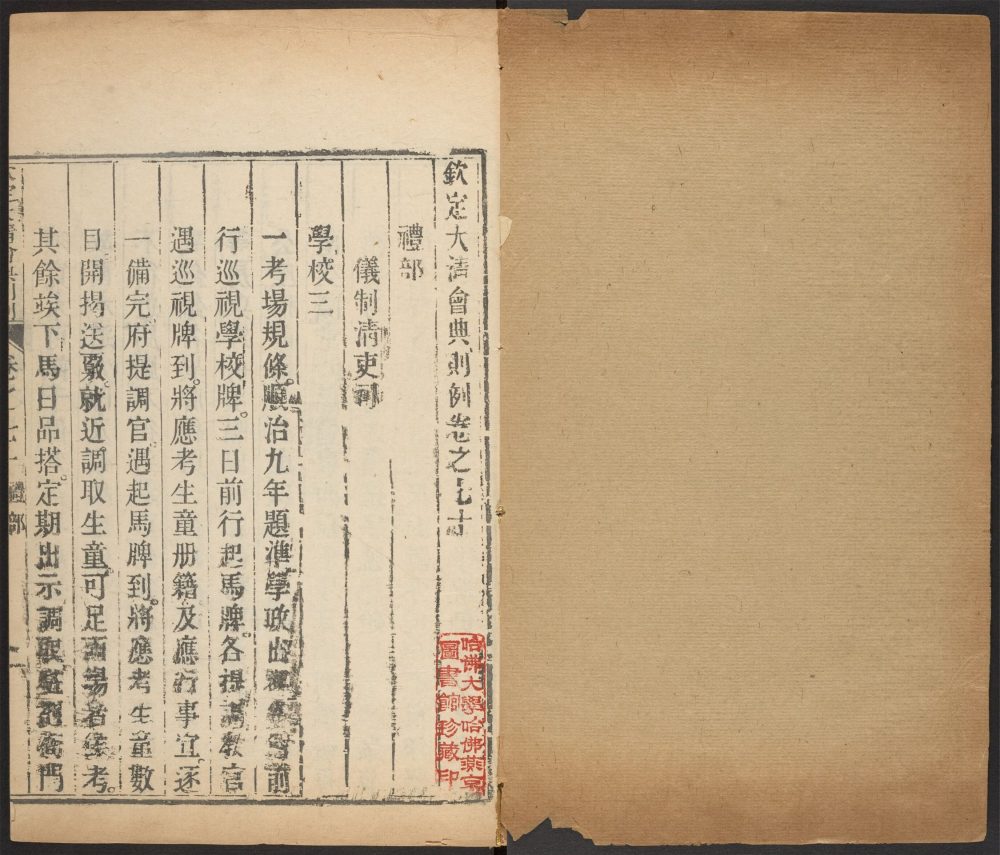 欽定大清會典則例卷之七十
禮部
儀制清吏司
學校三
一考場規條。順治九年題準學政出巡
前
行巡視學校牌。三日前行起馬牌。各提調教官
遇巡視牌到。將應考生童册籍及應行事宜。逐
一備完府提調官。遇起馬牌到。將應考生童數
目開揭送覈。就近調取生童。可足兩場者候考。
其餘竢下馬日品搭。定期出示調取
衙門
欽定大清會典則例
卷之七十
禮部
一
哈佛大學哈佛燕京
圖書館珍藏印